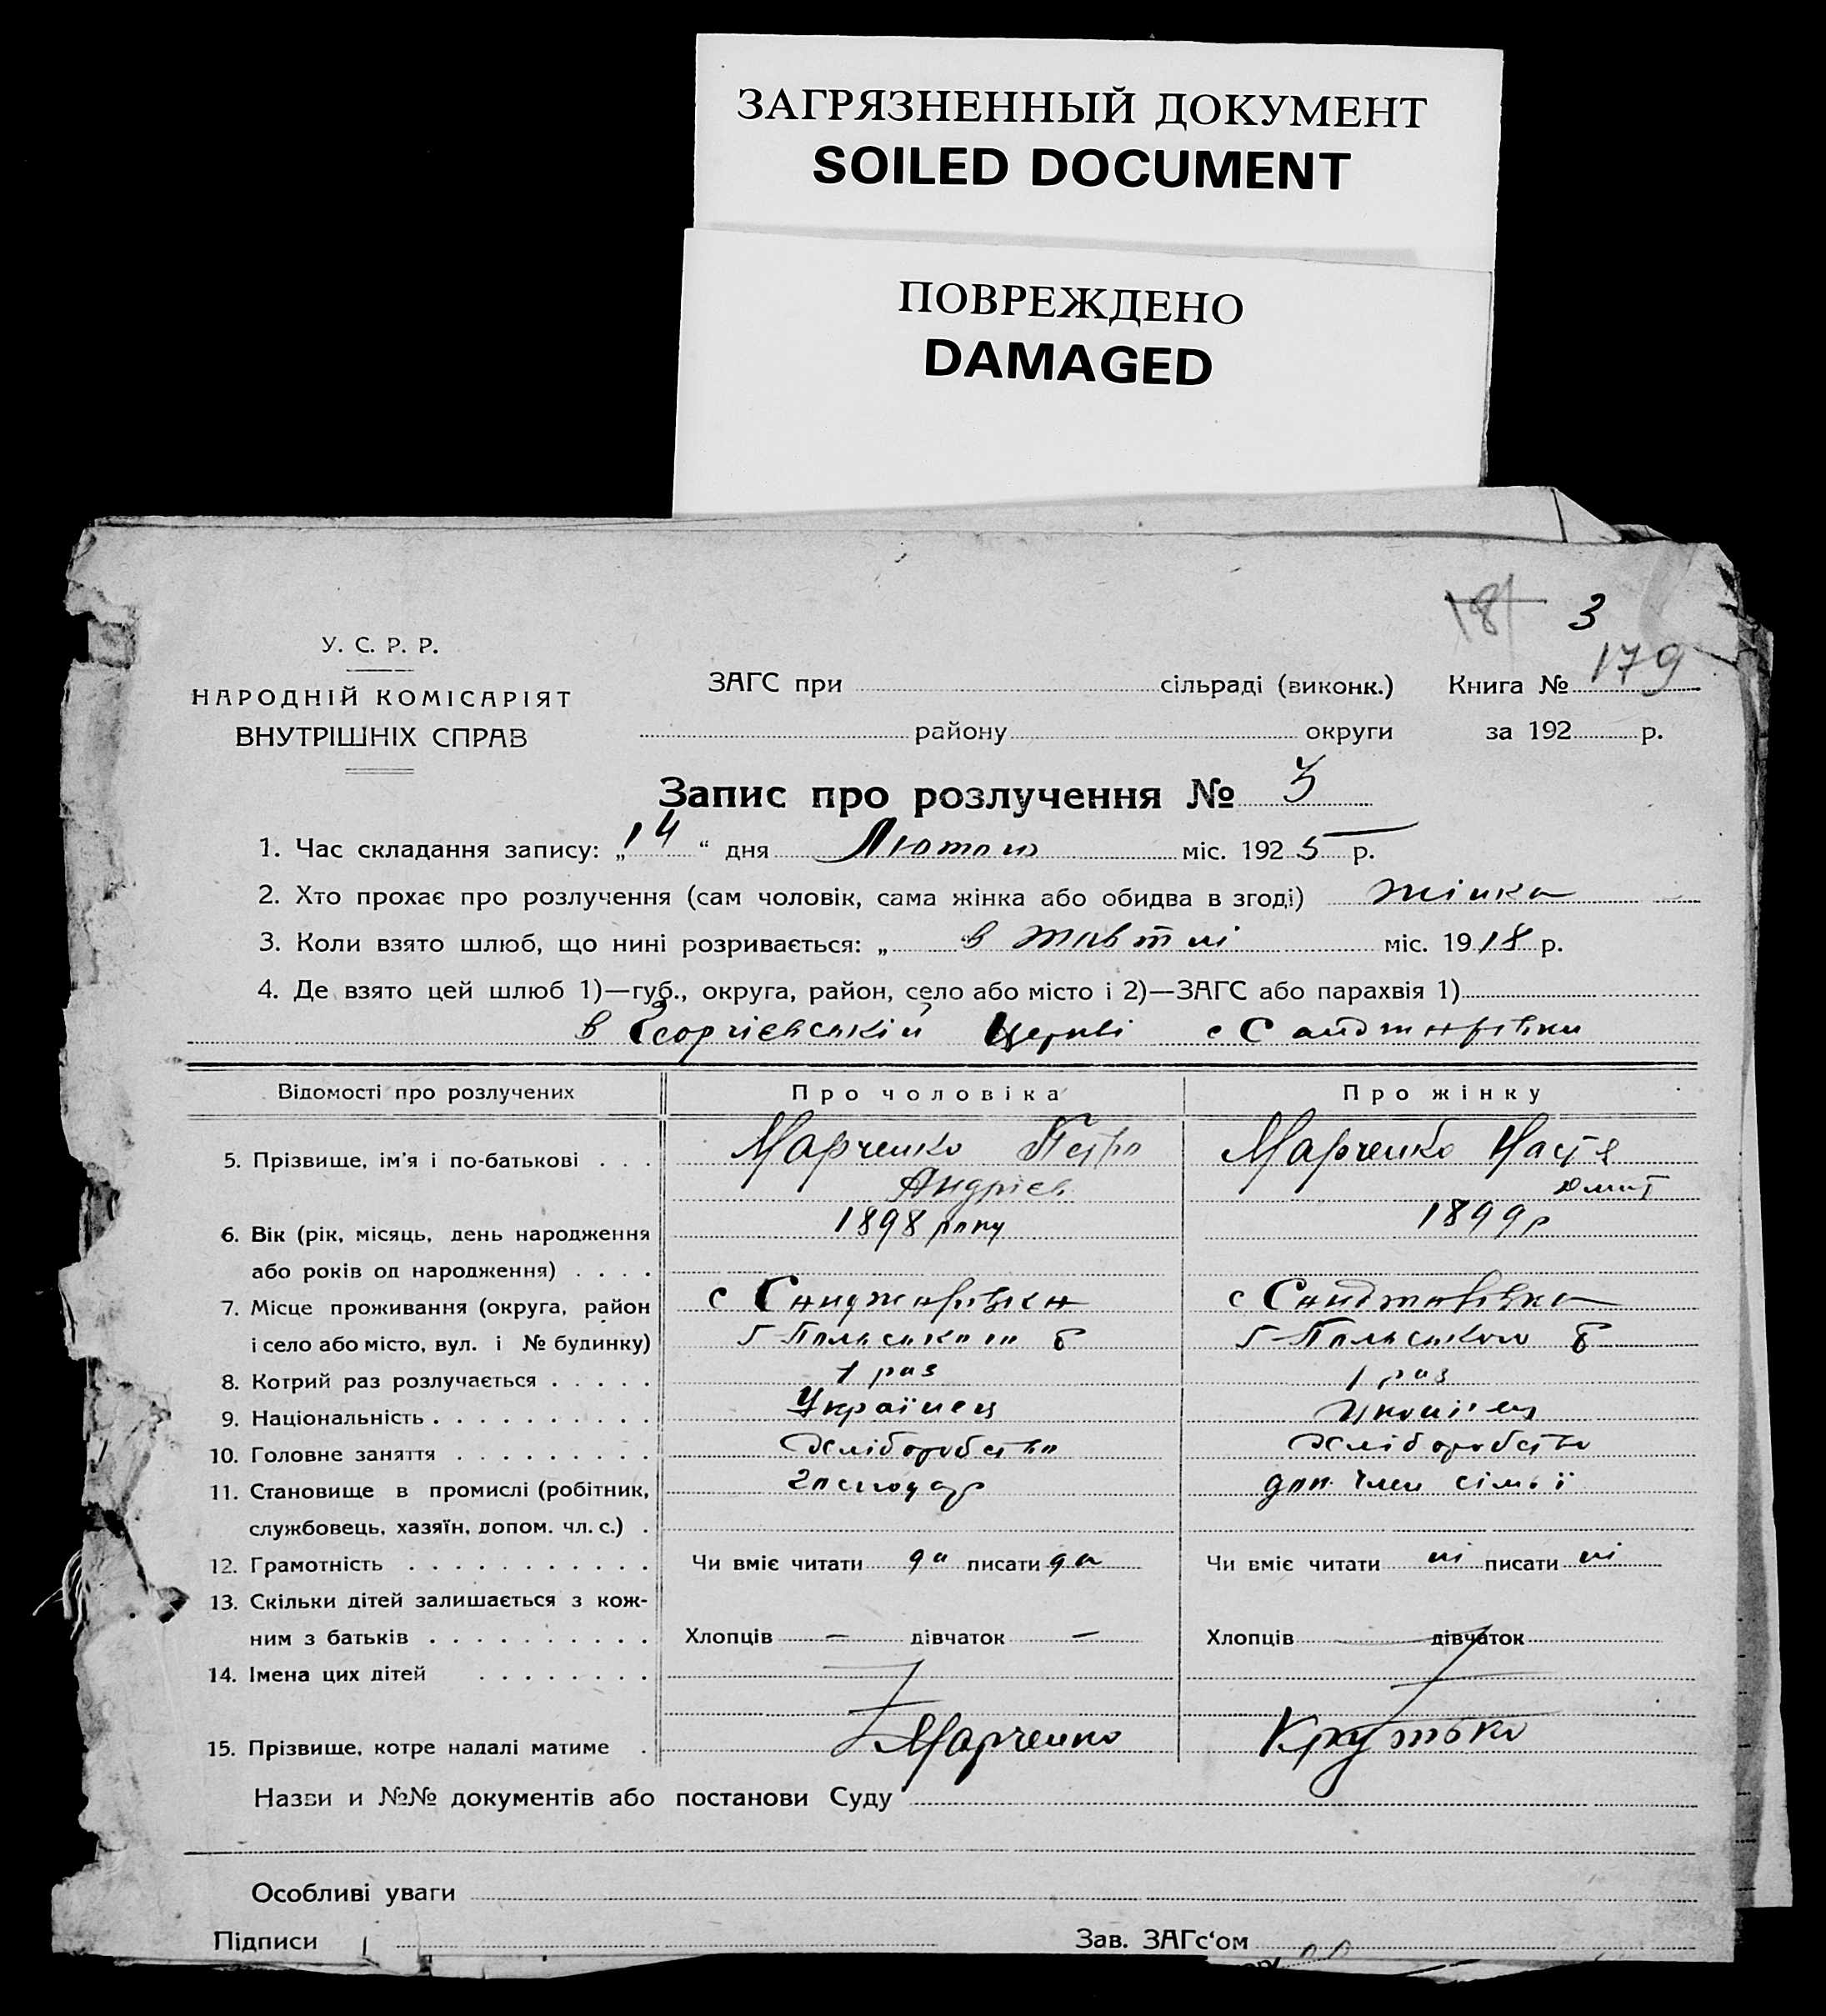 ЗАГРЯЗНЕННЫЙ ДОКУМЕНТ
SOILED DOCUMENT
ПОВРЕЖДЕНО
DAMAGED
181 3
У. С. Р. Р.
НАРОДНІЙ КОМІСАРІЯТ
ВНУТРІШНІХ СПРАВ
ЗАГС при сільраді (виконк.) Книга № 179
району округи за 192 р.
Запис про розлучення № 3
1. Час складання запису: „14“ дня Лютого міс. 1925 р.
2. Хто прохає про розлучення (сам чоловік, сама жінка або обидва в згоді) жінка
3. Коли взято шлюб, що нині розривається: „ в жовтні міс. 1918 р.
4. Де взято цей шлюб 1)—губ., округа, район, село або місто і 2)—ЗАГС або парахвія 1)
в Георгієвській Церкві с Санджарівки
Відомості про розлучених Про чоловіка Про жінку
5. Прізвище, ім'я і по-батькові . . . Марченко Петро Марченко Настя
Андрієв Дмит
6. Вік (рік, місяць, день народження 1898 року 1899 р
або років од народження) . . . .
7. Місце проживання (округа, район с Санджарівка с Санджарівка
і село або місто, вул. і № будинку)
8. Котрий раз розлучається . . . . . 1 раз 1 раз
9. Національність . . . . . . . . . . Українец Українец
10. Головне заняття . . . . . . . . . Хліборобство Хліборобство
11. Становище в промислі (робітник, господар доп. член сімьї
службовець, хазяїн, допом. чл. с.) .
12. Грамотність . . . . . . . . . . . Чи вміє читати да писати да Чи вміє читати ні писати ні
13. Скільки дітей залишається з кож-
ним з батьків . . . . . . . . . . Хлопців — дівчаток — Хлопців — дівчаток
14. Імена цих дітей . . . . . . . .
15. Прізвище, котре надалі матиме . Марченко Крутько
Назви и №№ документів або постанови Суду
Особливі уваги
Підписи Зав. ЗАГс‘ом